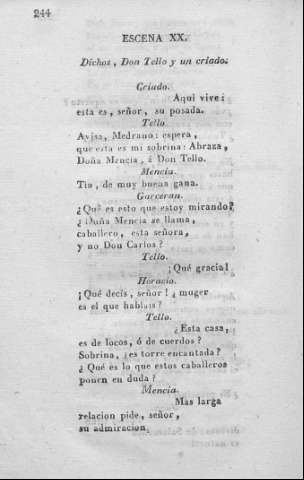 244
ESCENA XX.
Dichos, Don Tello y un criado.
Criado.
Aqui vive:
esta es, señor, su posada.
Tello.
Avisa, Medrano: espera,
que esta es mi sobrina: Abraza,
Doña Mencia, á Don Tello.
Mencia.
Tio, de muy buena gana.
Garceran.
¿Qué es esto que estoy mirando?
¿Duña Mencia se llama,
caballero, esta señora,
y no Don Carlos?
Tello.
¡Qué gracia!
Horacio.
¡Qué decís, señor! ¿muger
es el que hablais?
Tello.
¿Esta casa,
es de locos, ó de cuerdos?
Sobrina, ¿es torre encantada?
¿Qué es lo que estos caballeros
ponen en duda?
Mencia.
Mas larga
relacion pide, señor,
su admiracion.